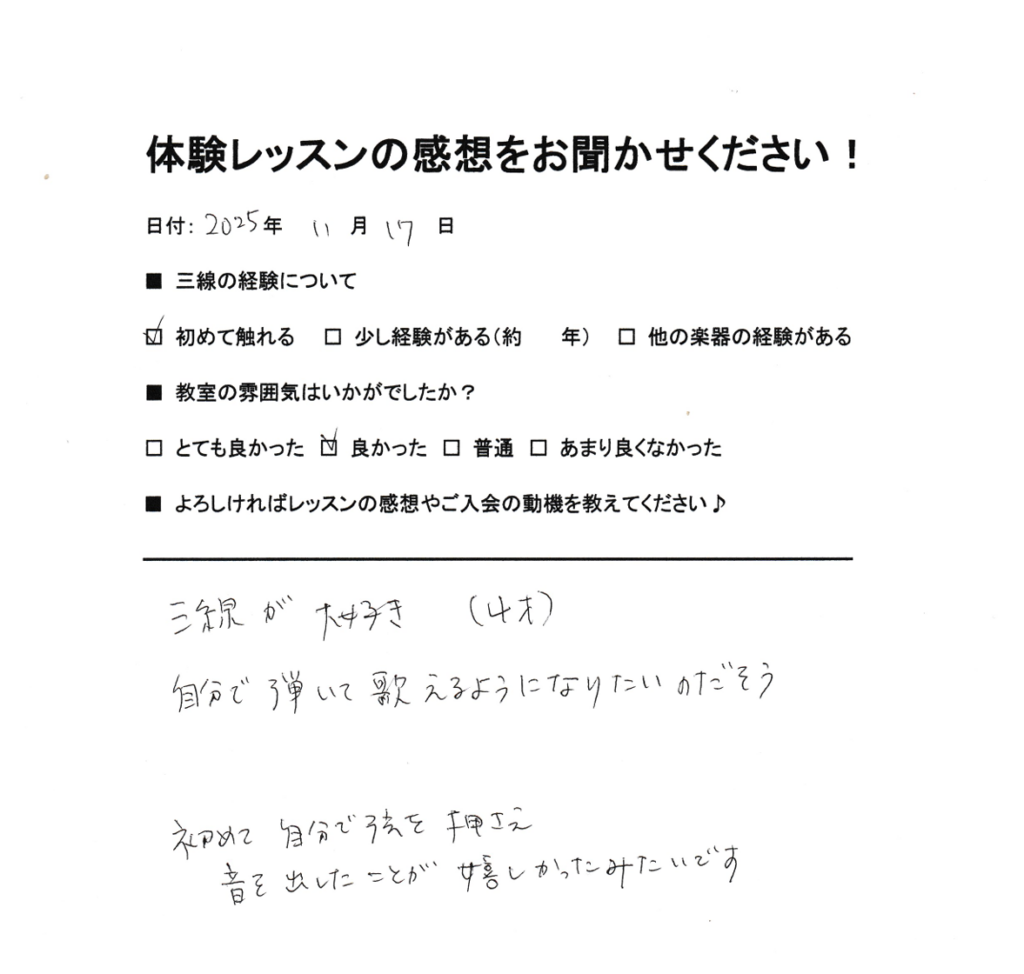 体験レッスンの感想をお聞かせください！
日付: 2025年 11月 17日
■ 三線の経験について
☑ 初めて触れる □ 少し経験がある(約 年) □ 他の楽器の経験がある
■ 教室の雰囲気はいかがでしたか？
□ とても良かった ☑ 良かった □ 普通 □ あまり良くなかった
■ よろしければレッスンの感想やご入会の動機を教えてください♪
三線が 大好き (4才)
自分で 弾いて 歌えるようになりたいのだそう
初めて 自分で弦を 押さえ
音を 出したことが 嬉しかったみたいです